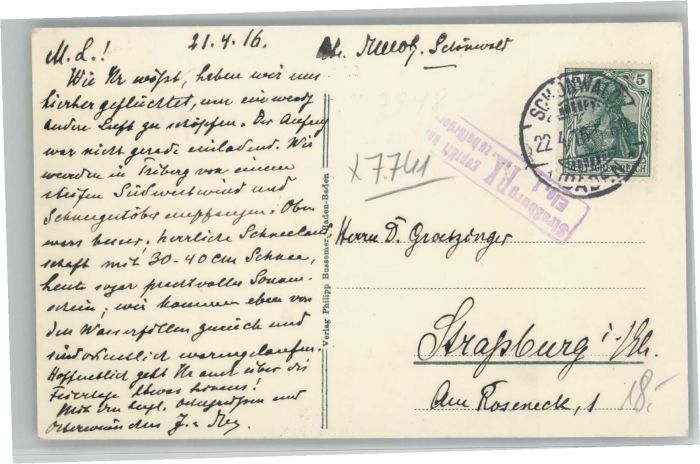 21.4.16.
M. L.!
Wie Ihr wißt, haben wir uns
hierher geflüchtet, um ein wenig
andere Luft zu schöpfen. Der Anfang
war nicht gerade einladend. Wir
wurden in Triberg von einem
steifen Südwestwind und
Schneegestöber empfangen. Oben
wars besser: herrliche Schneeland-
schaft mit 30-40 cm Schnee,
heute sogar prachtvoller Sonnen-
schein; wir kommen eben von
den Wasserfällen zurück und
sind ordentlich warmgelaufen.
Hoffentlich geht Ihr auch über die
Feiertage etwas hinaus!
Mit den herzl. Ostergrüßen und
Osterwünschen
Verlag Philipp Bussemer, Baden-Baden
Schönwald
7748
x7.741
Straßburg
Herrn D. Groetzinger
Straßburg i/Els.
Am Roseneck, 1
18.-
SCHÖNWALD
22.4.16
(BADEN)
5